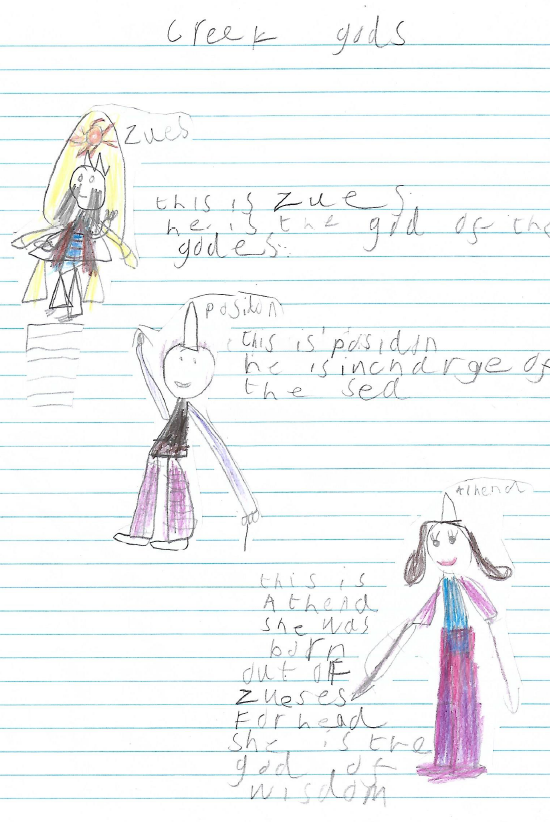 Greek gods
zues
this is zues.
he is the god of the
godes.
posidon
this is posidon
he is incharge of
the sea
Athena
this is
Athena
she was
born
out of
zueses
forhead
she is the
god of
wisdom